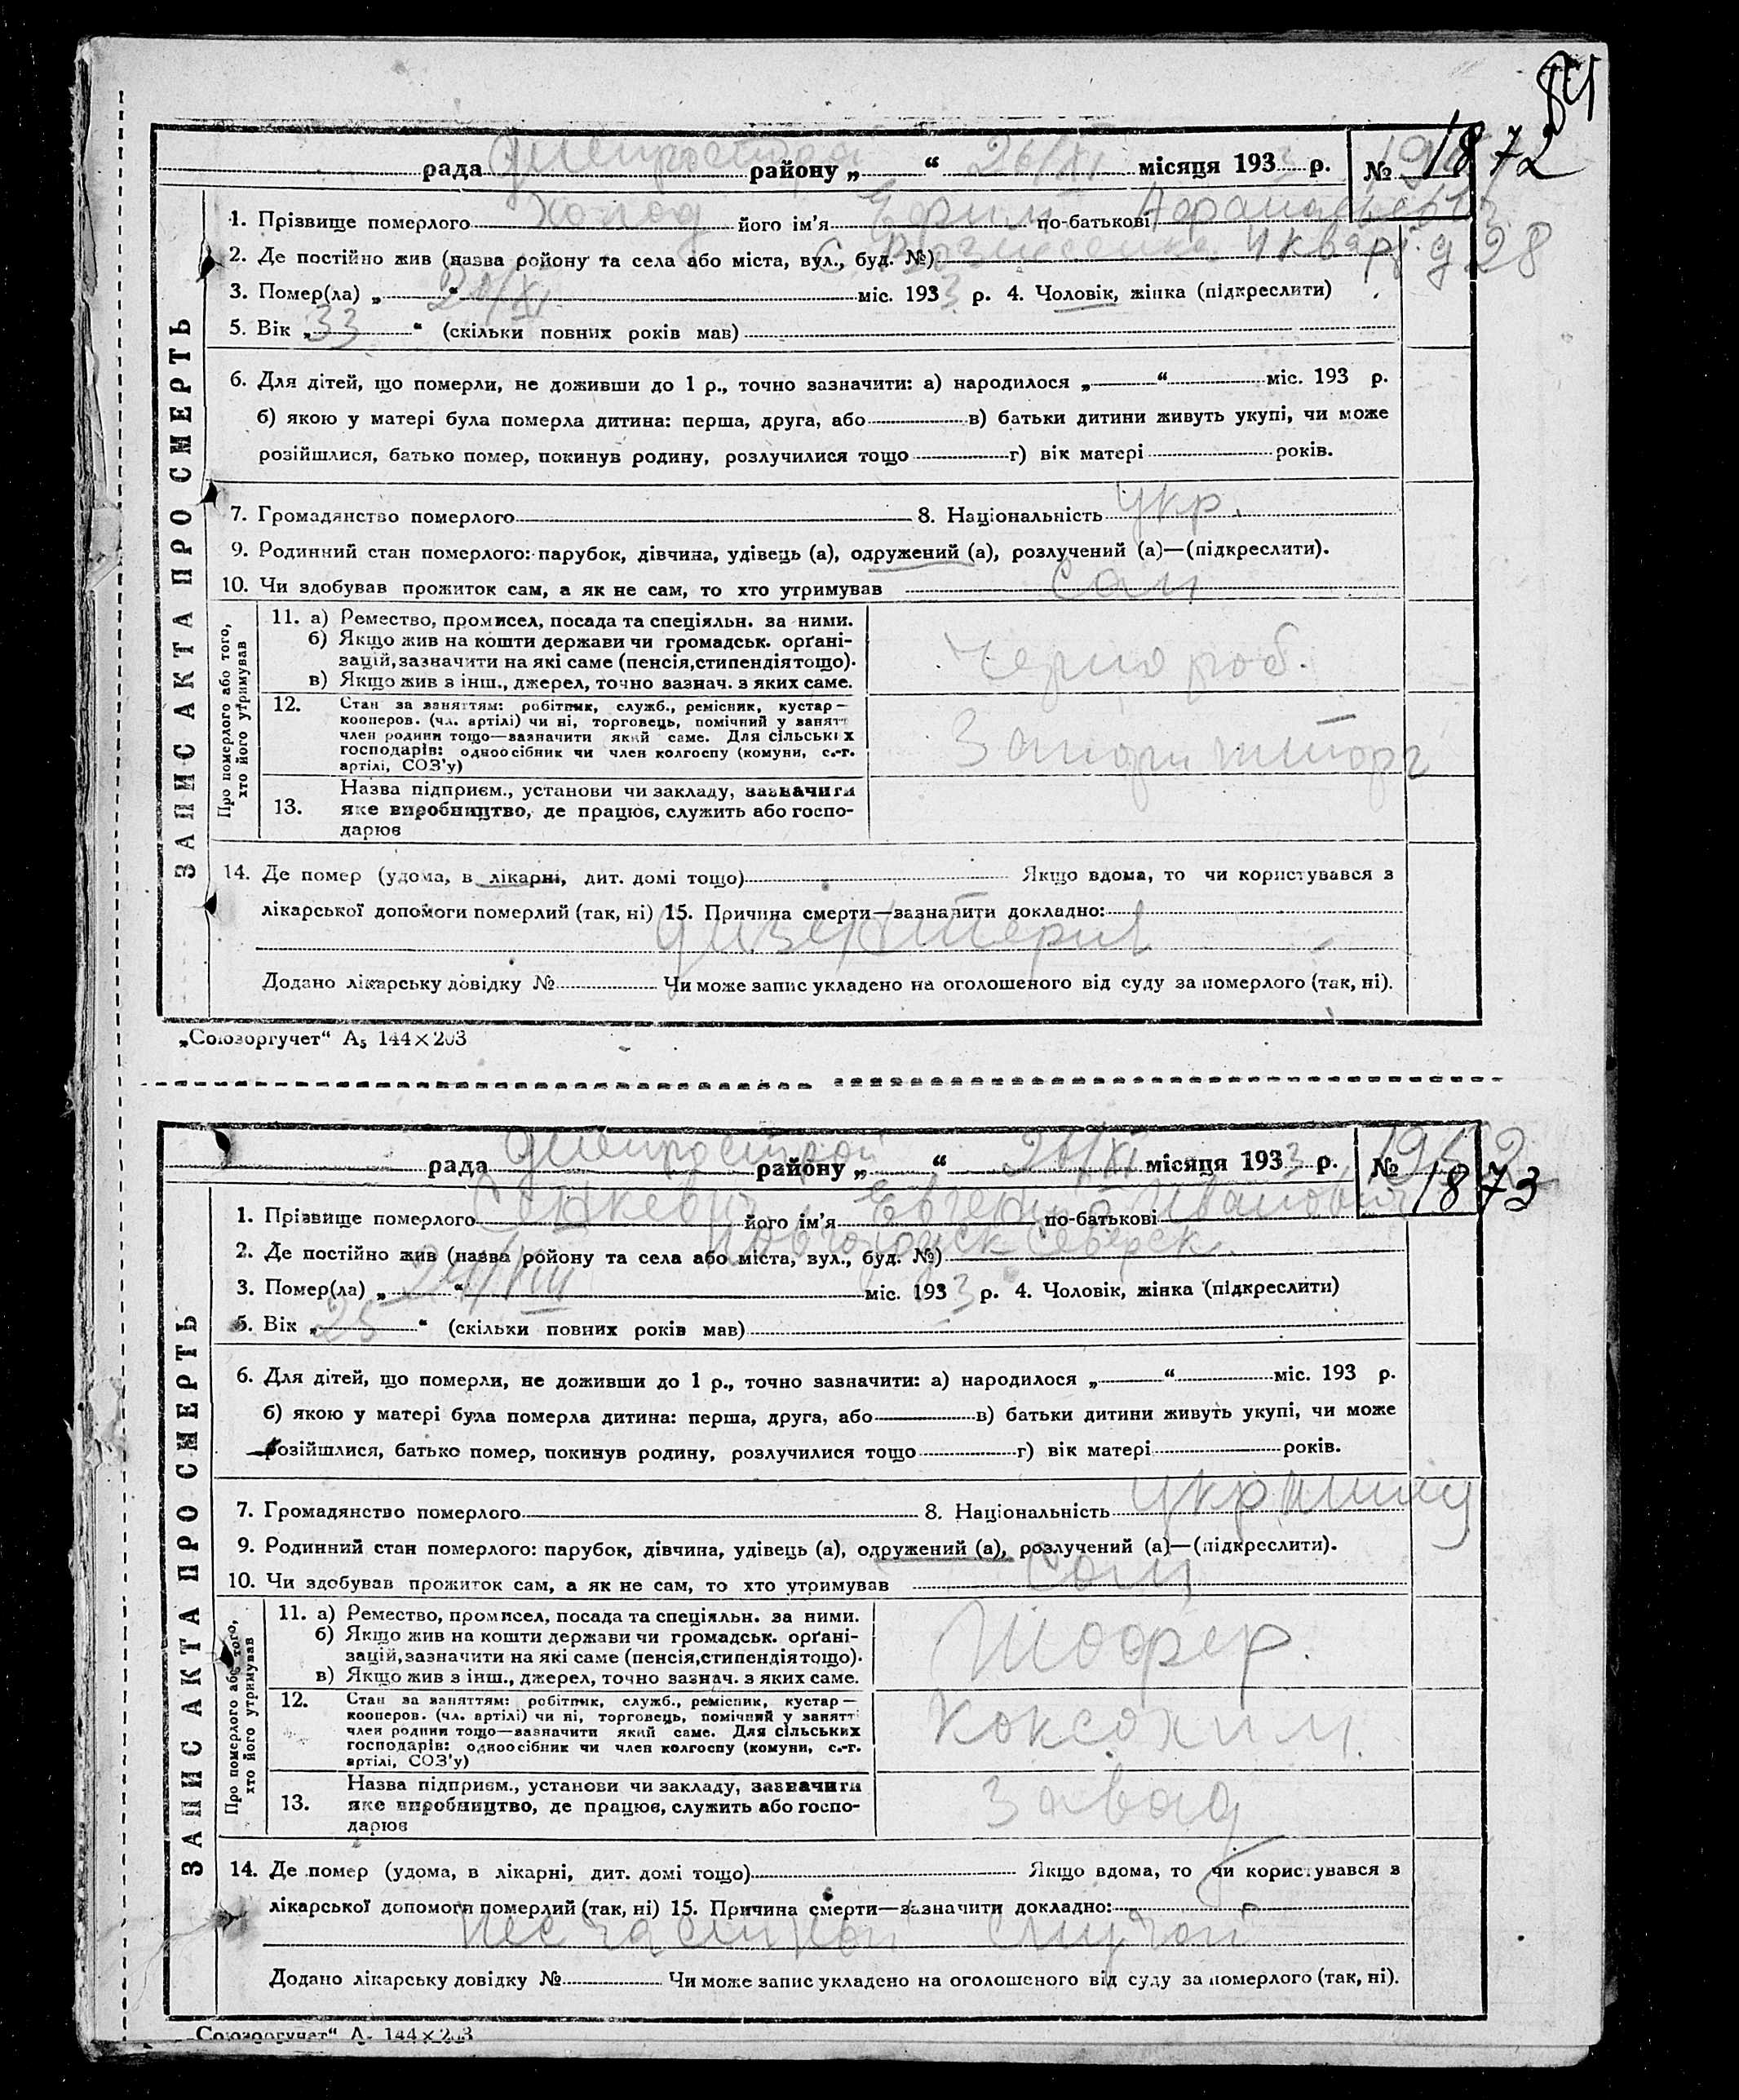 84
рада Днепрострой району „ “ 26/XI місяця 1933 р. № 1872
1. Прізвище померлого Холод його ім'я Ефрим по-батькові Афранасьевич
2. Де постійно жив (назва ройону та села або міста, вул., буд. №) С. Вознесенка 4 кварт. д 28
3. Помер(ла) „ “ міс. 1933 р. 4. Чоловік, жінка (підкреслити)
5. Вік „33“ (скільки повних років мав)
6. Для дітей, що померли, не доживши до 1 р., точно зазначити: а) народилося „ “ міс. 193 р.
б) якою у матері була померла дитина: перша, друга, або в) батьки дитини живуть укупі, чи може
розійшлися, батько помер, покинув родину, розлучилися тощо г) вік матері років.
7. Громадянство померлого 8. Національність Укр.
9. Родинний стан померлого: парубок, дівчина, удівець (а), одружений (а), розлучений (а)—(підкреслити).
10. Чи здобував прожиток сам, а як не сам, то хто утримував сам
ЗАПИС АКТА ПРО СМЕРТЬ
Про померлого або того, хто його утримував
11. а) Ремество, промисел, посада та спеціяльн. за ними.
б) Якщо жив на кошти держави чи громадськ. орґані-
зацій, зазначити на які саме (пенсія, стипендія тощо).
в) Якщо жив з інш., джерел, точно зазнач. з яких саме.
Чернороб.
12. Стан за заняттям: робітник, служб., ремісник, кустар—
кооперов. (чл. артілі) чи ні, торговець, помічний у занятт
член родини тощо—зазначити який саме. Для сільських
господарів: одноосібник чи член колгоспу (комуни, с.-г.
артілі, СОЗ'у)
13. Назва підприєм., установи чи закладу, зазначити
яке виробництво, де працює, служить або госпо-
дарює
14. Де помер (удома, в лікарні, дит. домі тощо) Якщо вдома, то чи користувався з
лікарської допомоги померлий (так, ні) 15. Причина смерти—зазначити докладно:
дизентерия
Додано лікарську довідку № Чи може запис укладено на оголошеного від суду за померлого (так, ні).
„Союзоргучет“ А5 144×203
рада Днепрострой району „ “ 26/XI місяця 1933 р. № 1873
1. Прізвище померлого його ім'я Евгений по-батькові Иванович
2. Де постійно жив (назва ройону та села або міста, вул., буд. №)
3. Помер(ла) „ “ міс. 1933 р. 4. Чоловік, жінка (підкреслити)
5. Вік „25“ (скільки повних років мав)
6. Для дітей, що померли, не доживши до 1 р., точно зазначити: а) народилося „ “ міс. 193 р.
б) якою у матері була померла дитина: перша, друга, або в) батьки дитини живуть укупі, чи може
розійшлися, батько помер, покинув родину, розлучилися тощо г) вік матері років.
7. Громадянство померлого 8. Національність
9. Родинний стан померлого: парубок, дівчина, удівець (а), одружений (а), розлучений (а)—(підкреслити).
10. Чи здобував прожиток сам, а як не сам, то хто утримував сам
ЗАПИС АКТА ПРО СМЕРТЬ
Про померлого або того, хто його утримував
11. а) Ремество, промисел, посада та спеціяльн. за ними.
б) Якщо жив на кошти держави чи громадськ. орґані-
зацій, зазначити на які саме (пенсія, стипендія тощо).
в) Якщо жив з інш., джерел, точно зазнач. з яких саме.
Шофер.
12. Стан за заняттям: робітник, служб., ремісник, кустар—
кооперов. (чл. артілі) чи ні, торговець, помічний у занятті
член родини тощо—зазначити який саме. Для сільських
господарів: одноосібник чи член колгоспу (комуни, с.-г.
артілі, СОЗ'у)
Коксохим.
13. Назва підприєм., установи чи закладу, зазначити
яке виробництво, де працює, служить або госпо-
дарює
завод
14. Де помер (удома, в лікарні, дит. домі тощо) Якщо вдома, то чи користувався з
лікарської допомоги померлий (так, ні) 15. Причина смерти—зазначити докладно:
несчастной случай
Додано лікарську довідку № Чи може запис укладено на оголошеного від суду за померлого (так, ні).
„Союзоргучет“ А5 144×203